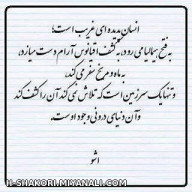 انسان پدیده ای غریب است؛
به فتح هیمالیا می رود، به کشف اقیانوس آرام دست میازد،
به ماه و مریخ سفر می کند،
و تنها یک سرزمین است که تلاش نمی کند آن را کشف کند
و آن دنیای درونی وجود اوست.
اشو
H-SHAKORI.MIYANALI.COM